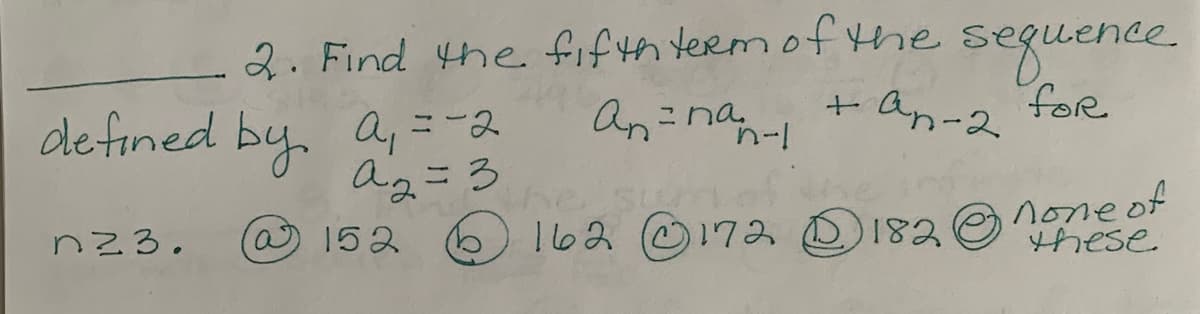 2. Find the fifth term of the sequence
defined by a₁ = -2 aₙ = naₙ₋₁ + aₙ₋₂ for
a₂ = 3
n≥3. ⓐ 152 ⓑ 162 ⓒ 172 Ⓓ 182 ⓔ none of
these